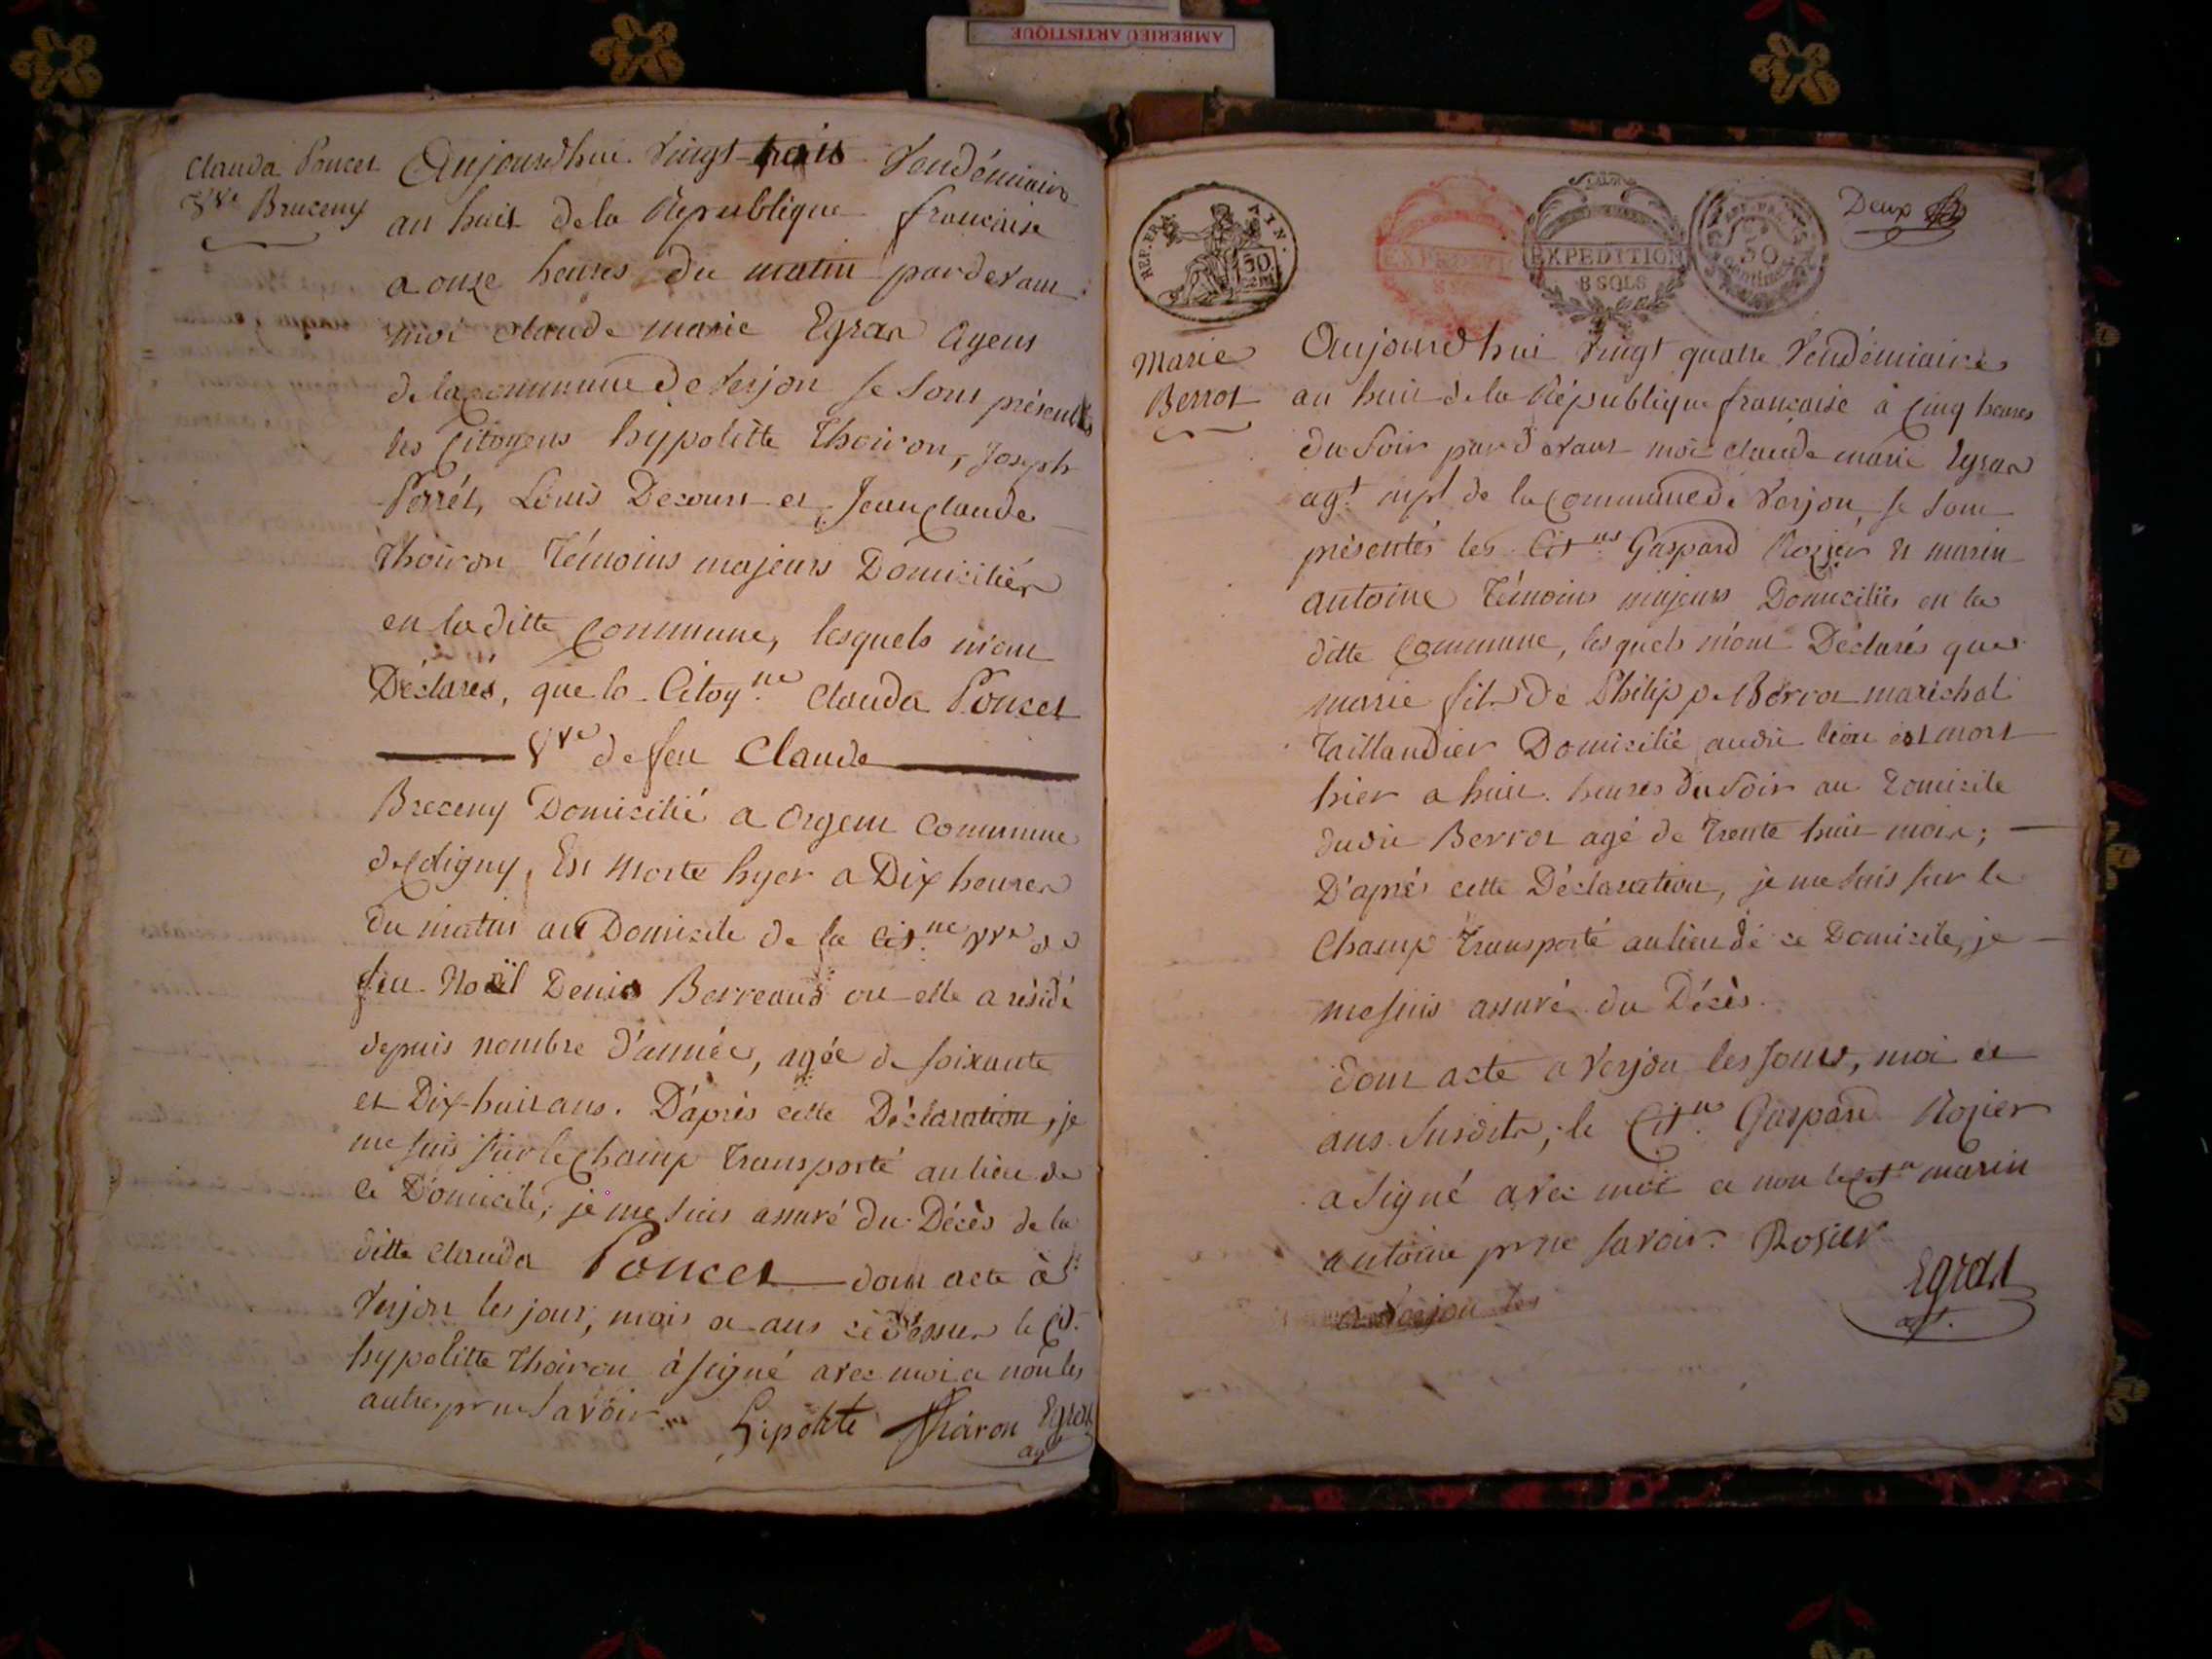 AMBERIEU ARTISTIQUE
Clauda Poncet
Vve Bruceny
Aujourdhui vingt trois Vendémiaire
an huit dela République francaise
a onze heures du matin pardevant
moi claude marie Egras Agent
de la commune de Verjon se sont présentés
les Citoyens hypolitte Thoiron, Joseph
Perrét, Louis Decourt et Jean claude
Thoiron Témoins majeurs Domiciliés
en laditte Commune, lesquels m'ont
Déclarés, que la Citoyne Clauda Poncet
Vve de feu Claude
Breceny Domicilié a Orgent Commune
de Coligny, Est morte hyer a Dix heures
du matin au Domicile de la Citne vve de
feu Noël Denis Berreaud ou elle a résidé
depuis nombre d'année, agée de soixante
et Dix-huit ans. D'après cette Déclaration, je
me suis sur le champ transporté au lieu de
ce Domicile, je me suis assuré du Décès de la
ditte Clauda Poncet dont acte à
Verjon les jour, mois et ans ci dessus le Cit.
hypolitte Thoiron à signé avec moi et non les
autres pr ne savoir
hipolite Thoiron Egras
agt
REP. FRA. 50 CENT
EXPEDITION
8 SOLS
EXPEDITION
8 SOLS
50
centimes
Deux
Marie
Berrot
Aujourdhui vingt quatre Vendémiaire
an huit de la République francaise à cinq heures
du soir pardevant moi claude marie Egras
agt mpl de la commune de Verjon, se sont
présentés les Citns Gaspard Rozier et marin
antoine Témoins majeurs Domiciliés en la
ditte Commune, lesquels m'ont Déclarés que
marie fils de Philippe Berrot marichal
Taillandier Domicilié audit lieu est mort
hier a huit heures du soir au Domicile
dudit Berrot agé de Trente huit mois;
D'après cette Déclaration, je me suis sur le
Champ Transporté au lieu de ce Domicile, je
me suis assuré du Décès.
dont acte a Verjon les jours, moi et
ans susdits; le Citn Gaspard Rozier
a signé avec moi et non le citn marin
antoine pr ne savoir. Rosier
Egras
agt.
a Verjon les